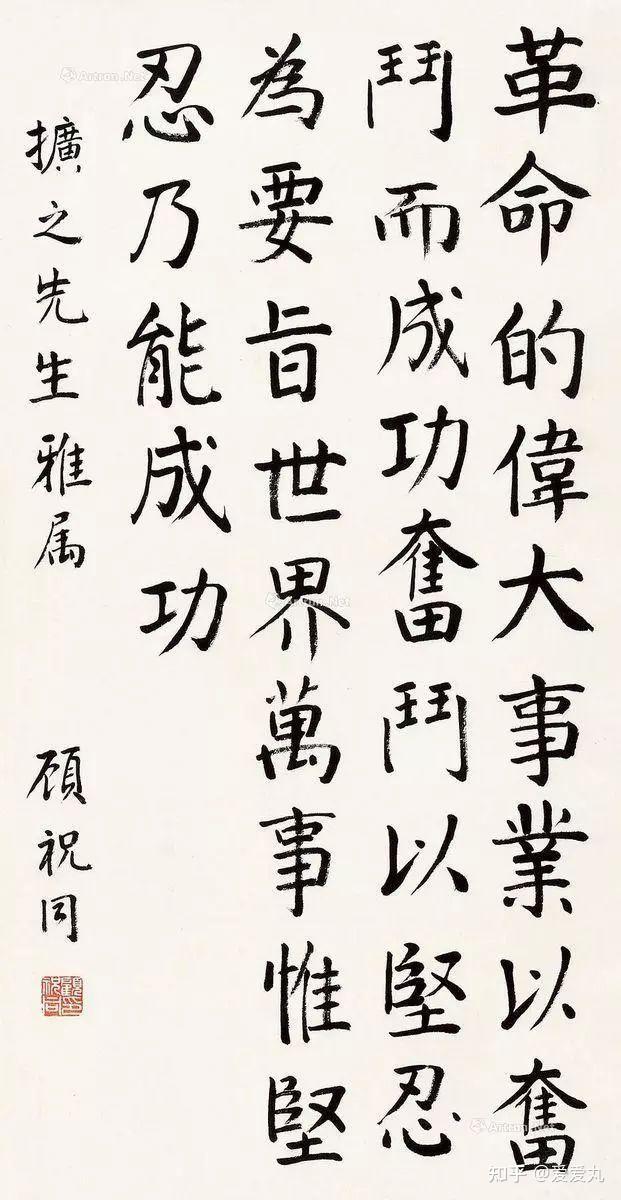 革命的偉大事業以奮
鬥而成功奮鬥以堅忍
為要旨世界萬事惟堅
忍乃能成功
擴之先生雅属
顾祝同
顧祝同印
Artron.Net
Artron.Net
Artron.Net
知乎 @爱爱丸